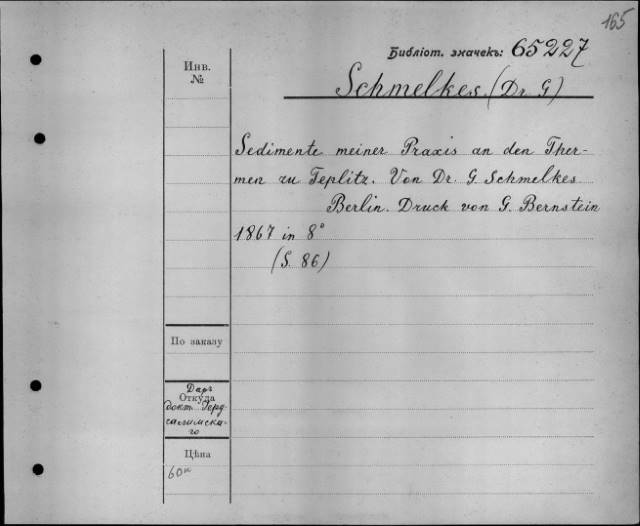 165
Библіот. значекъ: 65227
Инв.
№
Schmelkes. (Dr. G)
Sedimente meiner Praxis an den Ther-
men zu Teplitz. Von Dr. G. Schmelkes
Berlin. Druck von G. Bernstein
1867 in 8°
(S. 86)
По заказу
Даръ
Откуда
докт. Герд-
салимска-
го
Цѣна
60к